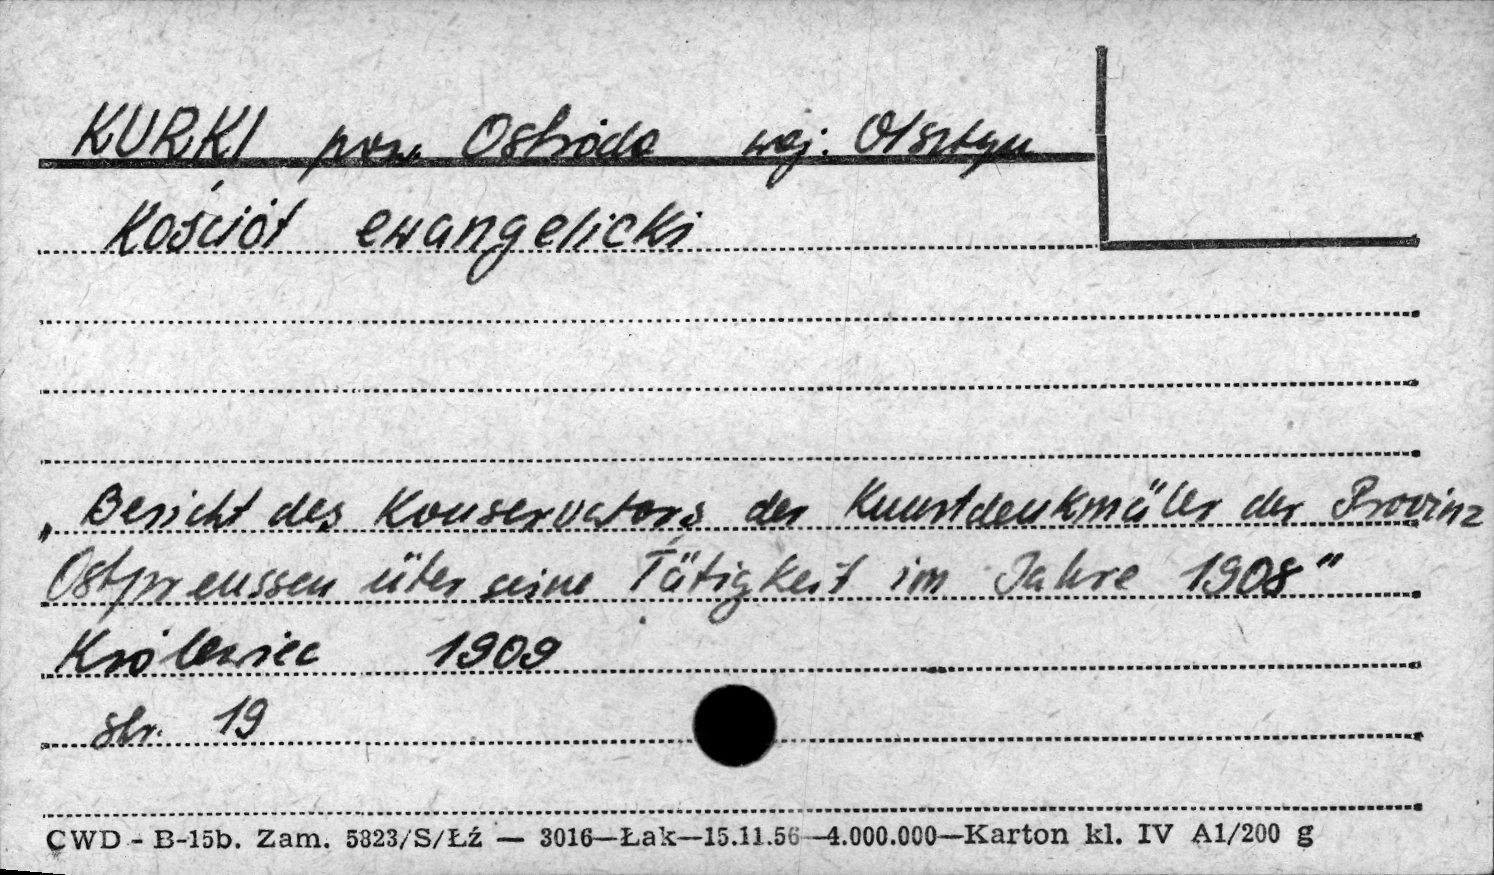 KURKI pow. Ostróda woj. Olsztyn
Kościół ewangelicki
„Bericht des Konservators der Kunstdenkmäler der Provinz
Ostpreussen über seine Tätigkeit im Jahre 1908"
Królewiec 1909
str. 19
CWD - B-15b. Zam. 5823/S/Łź — 3016—Łak—15.11.56—4.000.000—Karton kl. IV A1/200 g